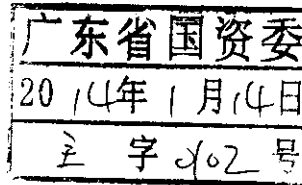 广东省国资委
2014年1月14日
主字 号